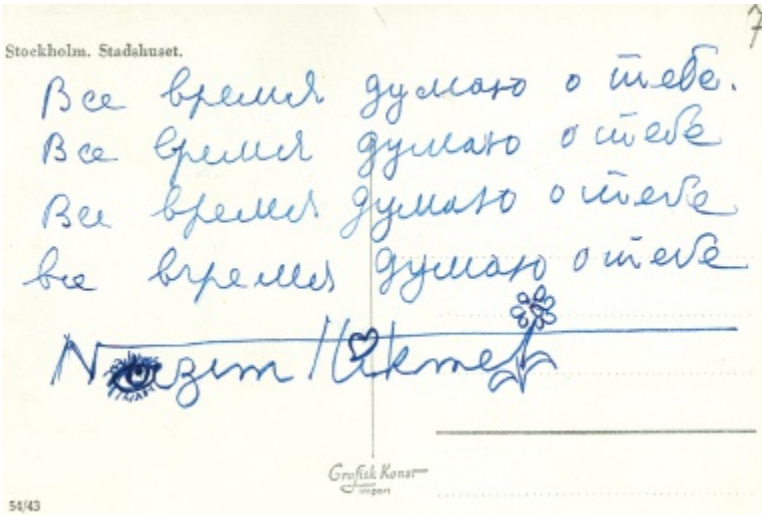 7
Stockholm. Stadshuset.
Все время думаю о тебе.
Все время думаю о тебе
Все время думаю о тебе
все время думаю о тебе
Nazım Hikmet
Grafisk Konst
import
54/43